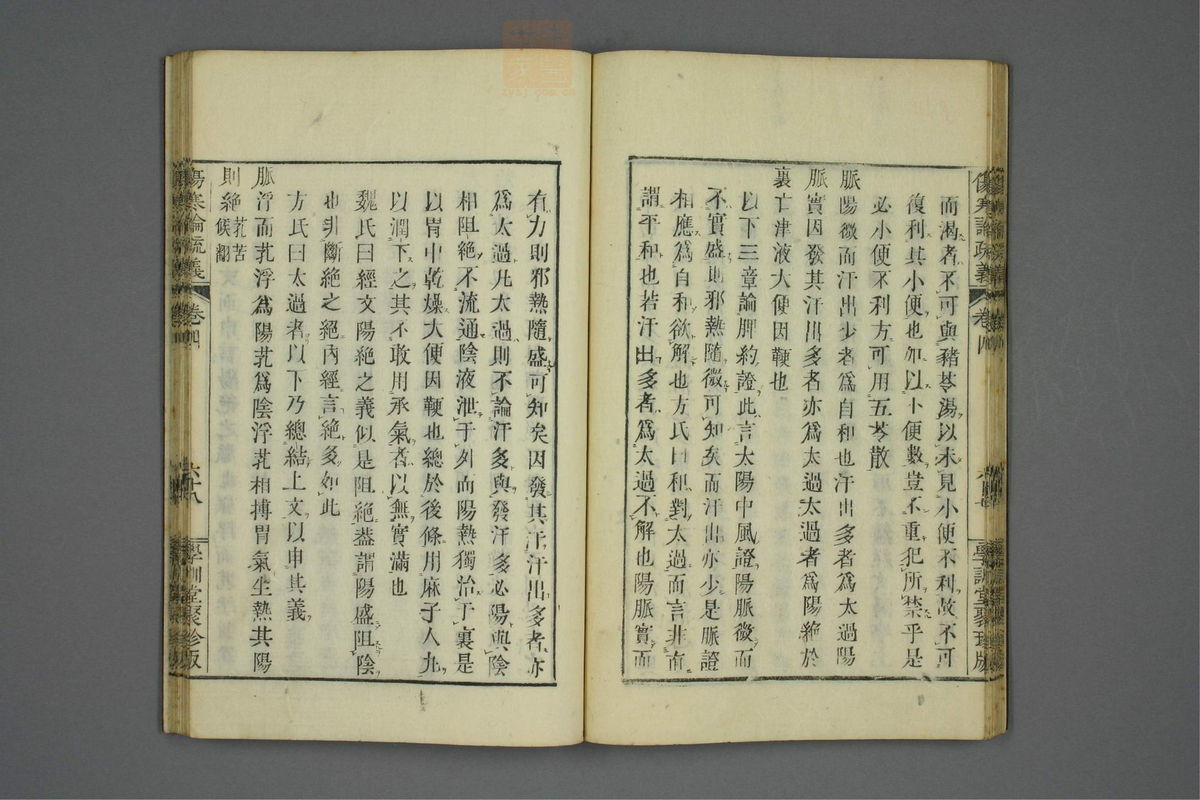 傷寒論疏義
卷四
學訓堂聚珍版
而渴者不可與豬苓湯以未見小便不利故不可
復利其小便也如以小便數豈不重犯所禁乎是
必小便不利方可用五苓散
脈陽微而汗出少者爲自和也汗出多者爲太過陽
脈實因發其汗出多者亦爲太過太過者爲陽絕於
裏亡津液大便因鞕也
以下三章論脾約證此言太陽中風證陽脈微而
不實盛則邪熱隨微可知矣而汗出亦少是脈證
相應爲自和欲解也方氏曰和對太過而言非直
謂平和也若汗出多者爲太過不解也陽脈實而
有力則邪熱隨盛可知矣因發其汗汗出多者亦
爲太過凡太過則不論汗多與發汗多必陽與陰
相阻絕不流通陰液泄于外而陽熱獨治于裏是
以胃中乾燥大便因鞕也總於後條用麻子人丸
以潤下之其不敢用承氣者以無實滿也
魏氏曰經文陽絕之義似是阻絕蓋謂陽盛阻陰
也非斷絕之絕內經言絕多如此
方氏曰太過者以下乃總結上文以申其義
脈浮而芤浮爲陽芤爲陰浮芤相搏胃氣生熱其陽
則絕芤苦侯翻
傷寒論疏義
卷四
六十八
學訓堂聚珍版